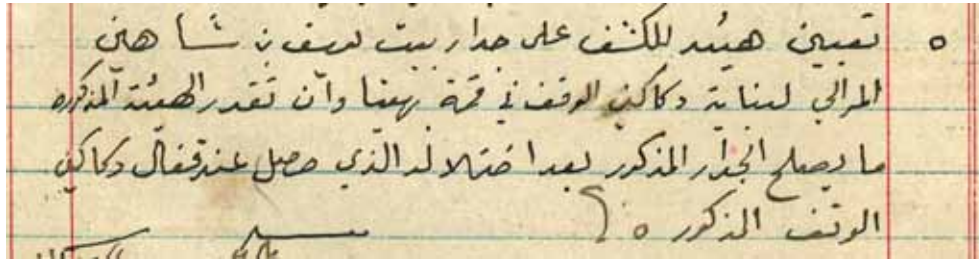 ٥ تعيين هيئه للكشف على جدار بيت يوسف بن شاهين
لبناية دكاكين الوقف في وان تقدر الهيئة المذكوره
ما يصلح الجدار المذكور بعد اختلاله الذي حصل عند دكاكين
الوقف المذكور ٥